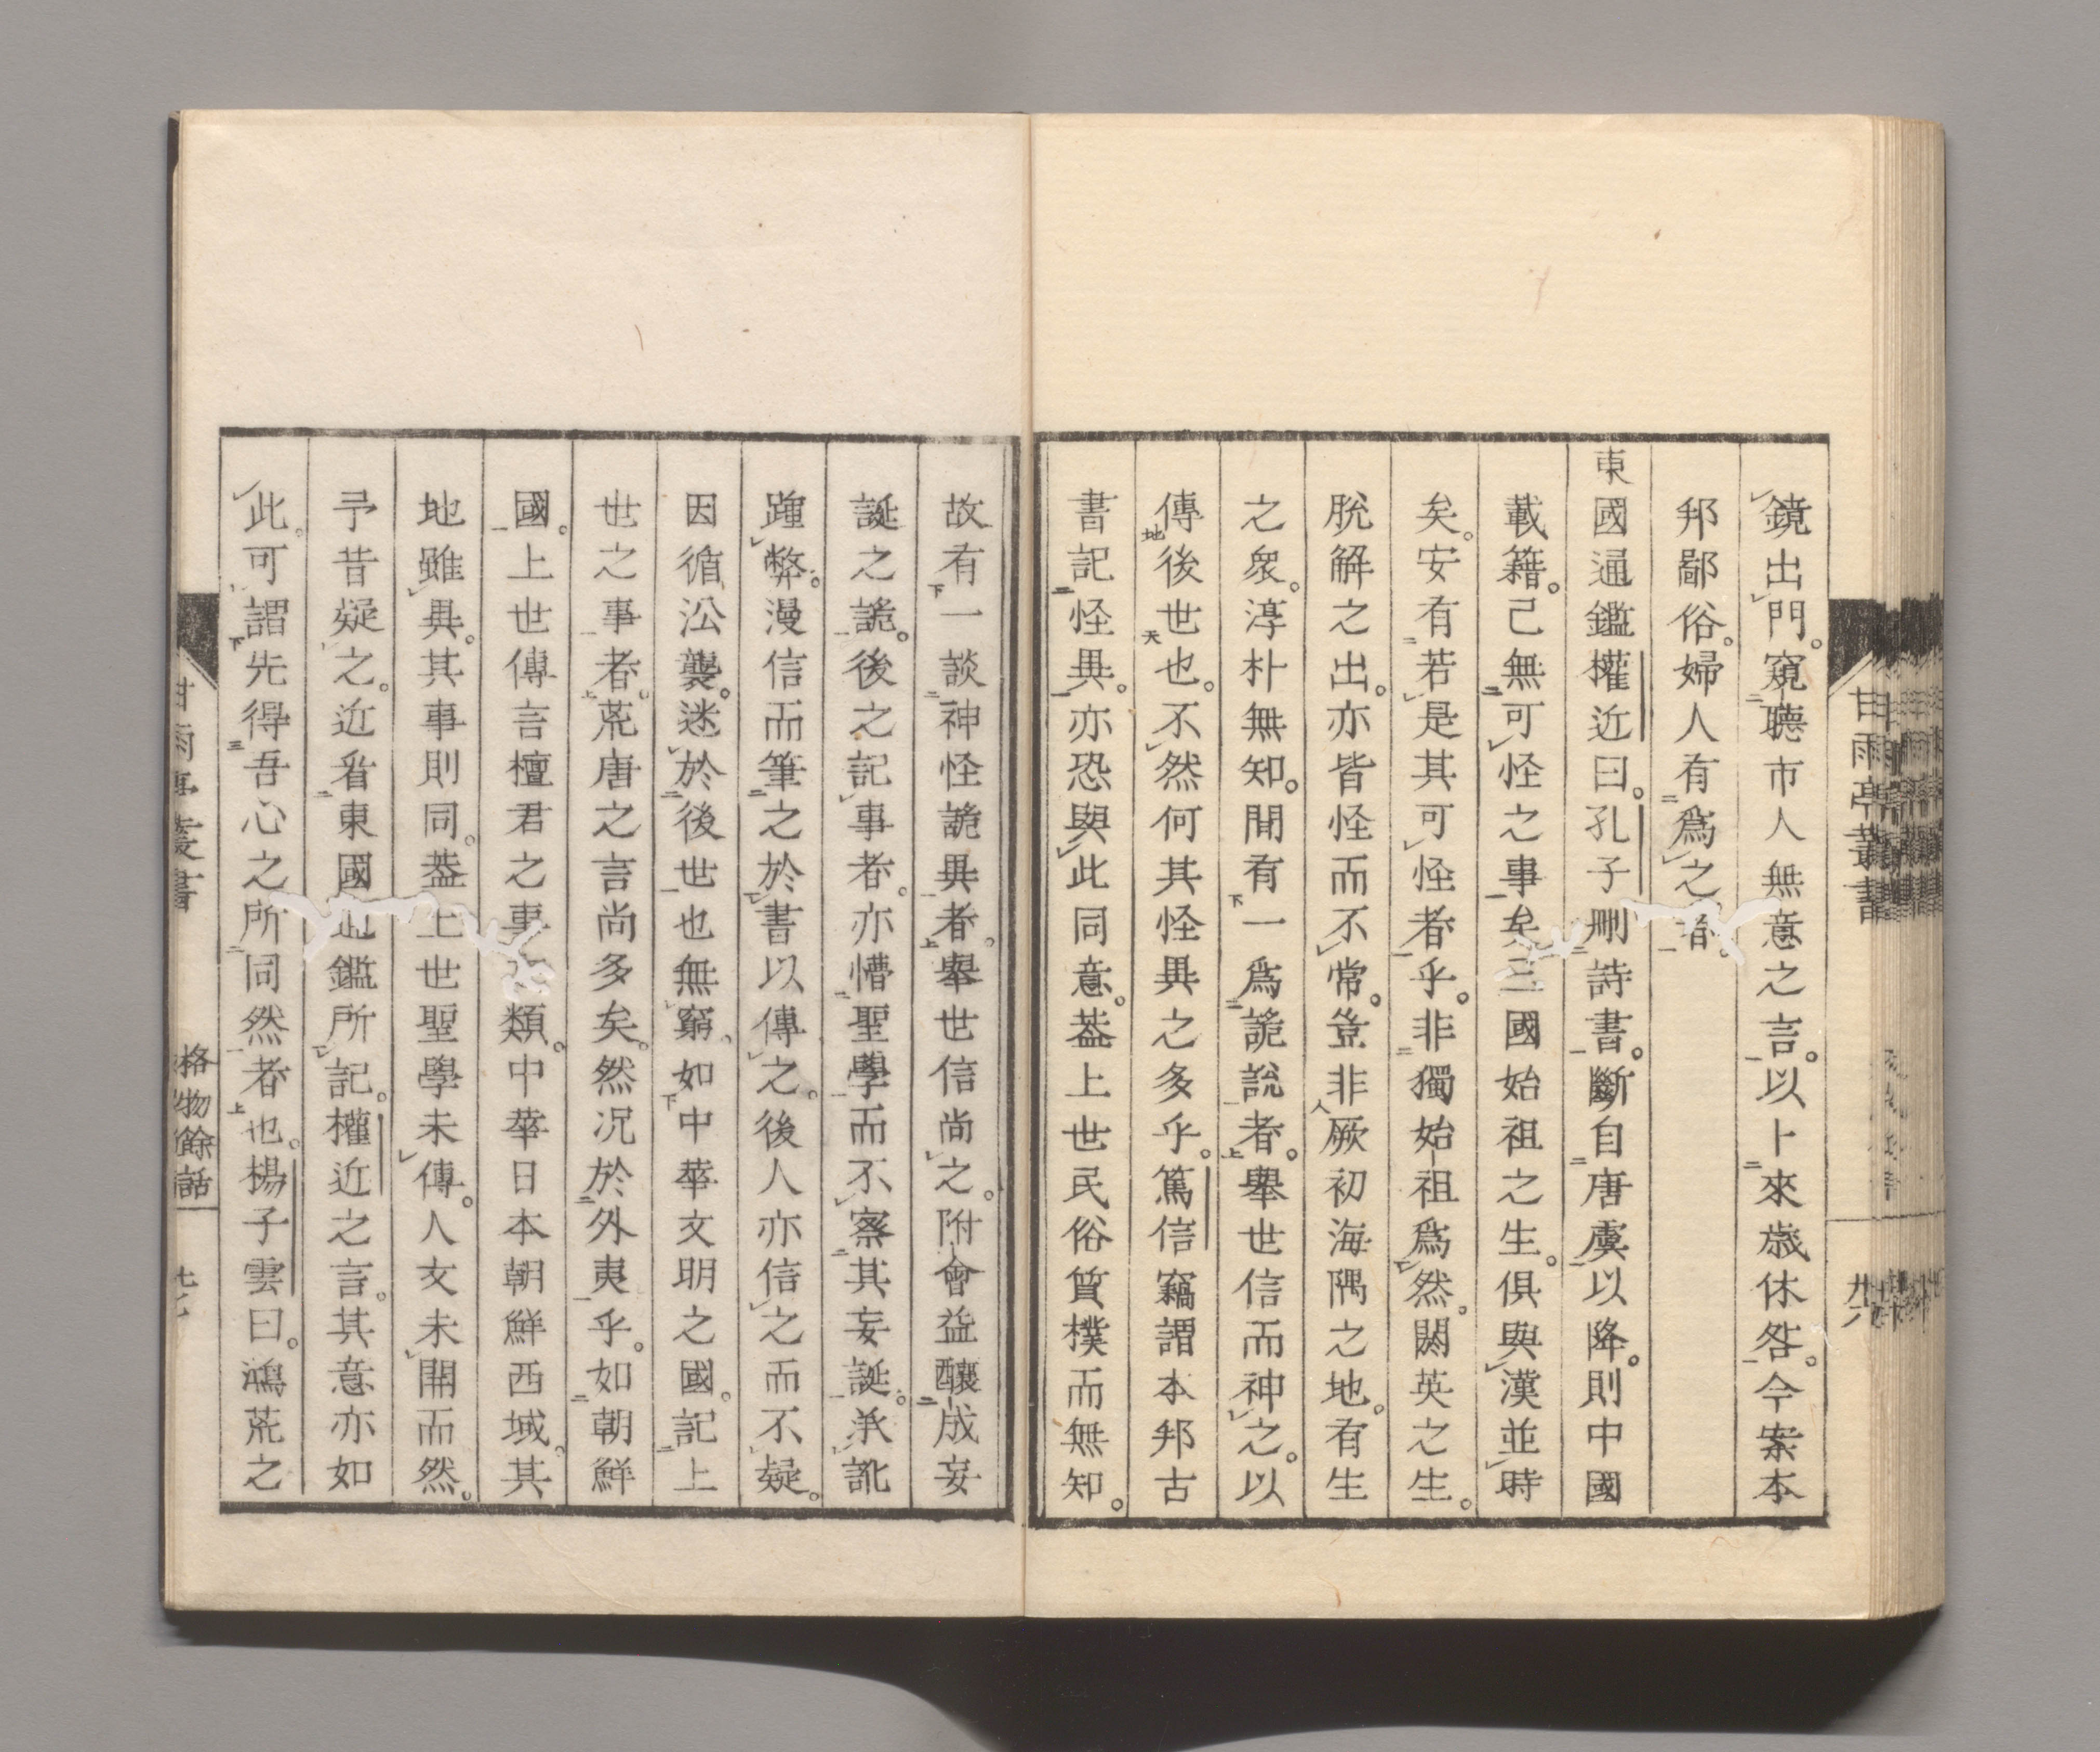 鏡出門。窺聽市人無意之言。以卜來歲休咎。今案本
邦鄙俗。婦人有爲之者。
東國通鑑權近曰。孔子刪詩書。斷自唐虞以降。則中國
載籍。已無可怪之事矣。三國始祖之生。俱與漢並時
矣。安有若是其可怪者乎。非獨始祖爲然。閼英之生。
脫解之出。亦皆怪而不常。豈非厥初海隅之地。有生
之衆。淳朴無知。閒有一爲詭說者。舉世信而神之。以
傳後世也。不然何其怪異之多乎。篤信竊謂本邦古
書記怪異。亦恐與此同意。蓋上世民俗質樸而無知。
故有一談神怪詭異者。舉世信尚之。附會益釀成妄
誕之詭。後之記事者。亦懵聖學而不察其妄誕。承訛
踵弊。漫信而筆之於書以傳之。後人亦信之而不疑。
因循沿襲。迷於後世也無窮。如中華文明之國。記上
世之事者。荒唐之言尚多矣。然况於外夷乎。如朝鮮
國。上世傳言檀君之事類。中華日本朝鮮西域。其
地雖異。其事則同。蓋上世聖學未傳。人文未開而然。
予昔疑之。近看東國通鑑所記。權近之言。其意亦如
此。可謂先得吾心之所同然者也。揚子雲曰。鴻荒之
甘雨亭叢書
格物餘話
十七
甘雨亭叢書
十六